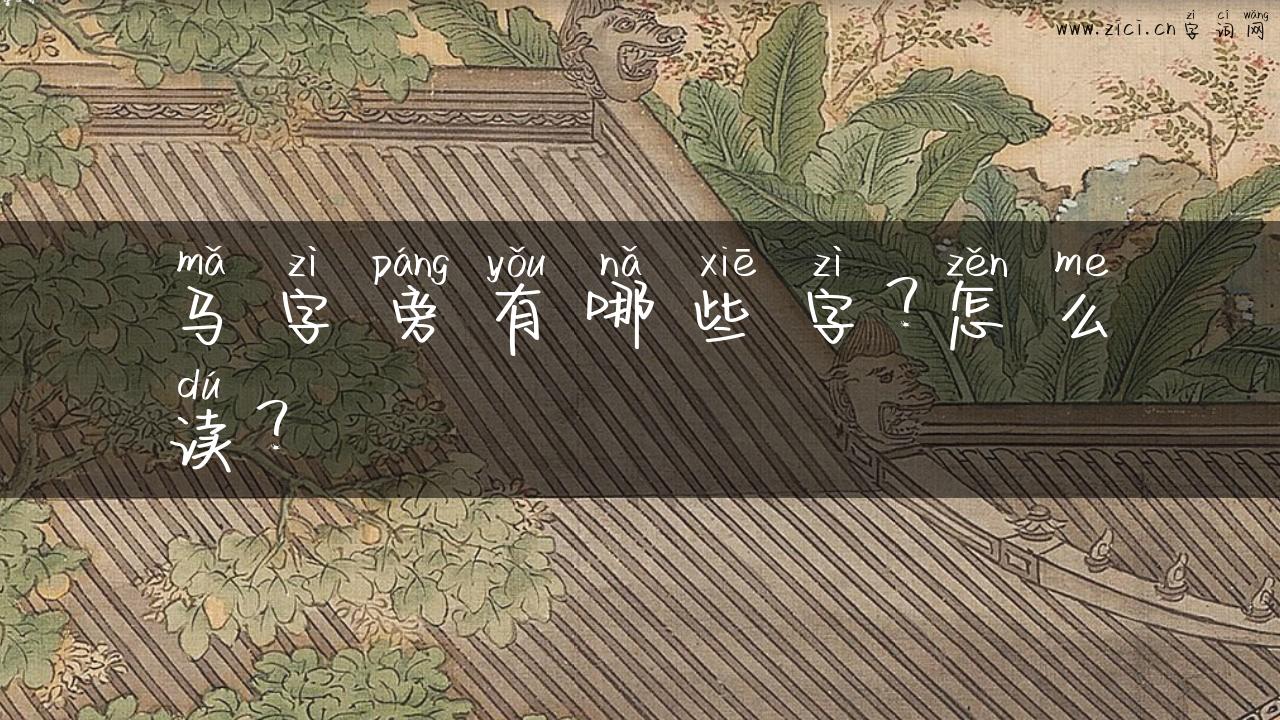 zì cí wǎng
www.zici.cn 字词网
mǎ zì páng yǒu nǎ xiē zì zěn me
马字旁有哪些字?怎么
dú
读?